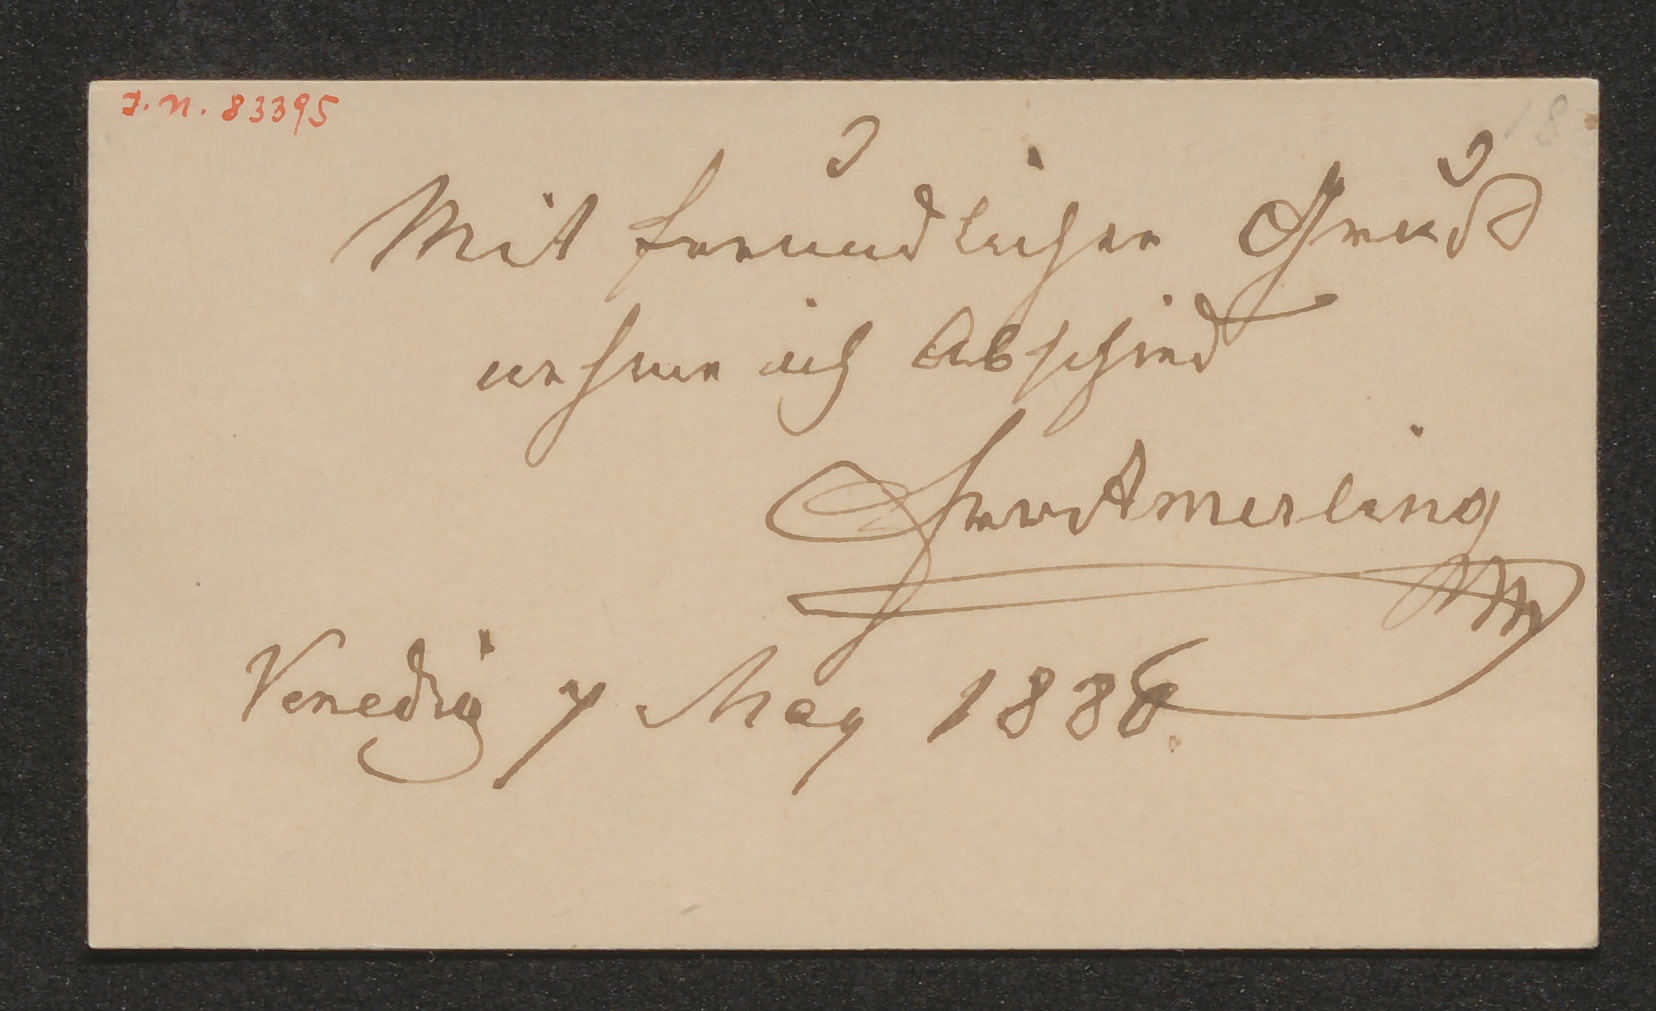 J. N. 83395
18
Mit freundlichen Gruß
nehme ich Abschied
Fr v Amerling
Venedig 7 May 1886.